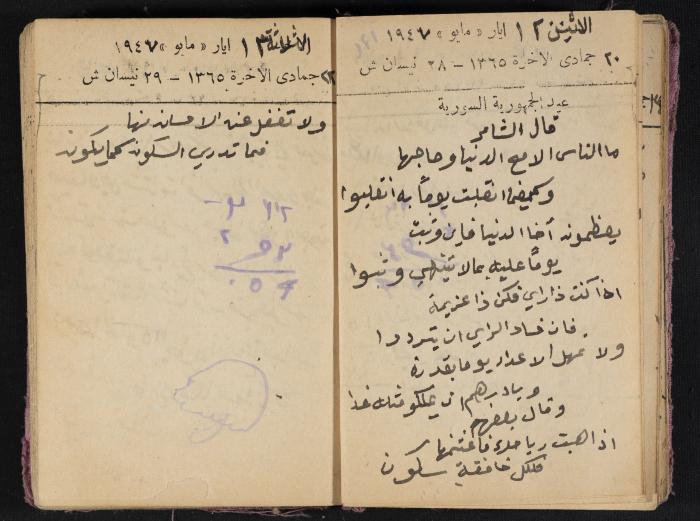 الاثنين ١٢ ايار « مايو » ١٩٤٧
٢٠ جمادى الآخرة ١٣٦٥ – ٢٨ نيسان ش
عيد الجمهورية السورية
قال الشاعر
ما الناس الا مع الدنيا وصاحبها
وكيفما انقلبت يوماً به انقلبوا
يعظمون أخا الدنيا فإن وثبت
يوماً عليه بما لا يشتهي وثبوا
اذا كنت ذا رأي فكن ذا عزيمة
فان فساد الرأي ان يترددوا
ولا تمهل الاعداء يوما بقدرة
وبادرهم ان يملكوا مثلها غدا
وقال بعضهم
اذا هبت رياحك فاغتنمها
فلكل خافقة سكون
الثلاثاء ١٣ ايار « مايو » ١٩٤٧
جمادى الآخرة ١٣٦٥ – ٢٩ نيسان ش
ولا تغفل عن الاحسان منها
فما تدري السكون كما يكون